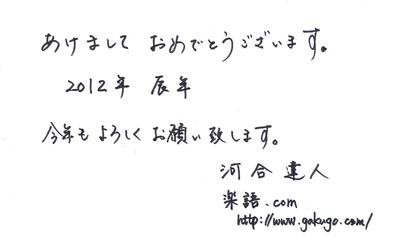 あけまして おめでとうございます。
2012年 辰年
今年も よろしく お願い致します。
河合達人
楽語.com
http://www.gakugo.com/